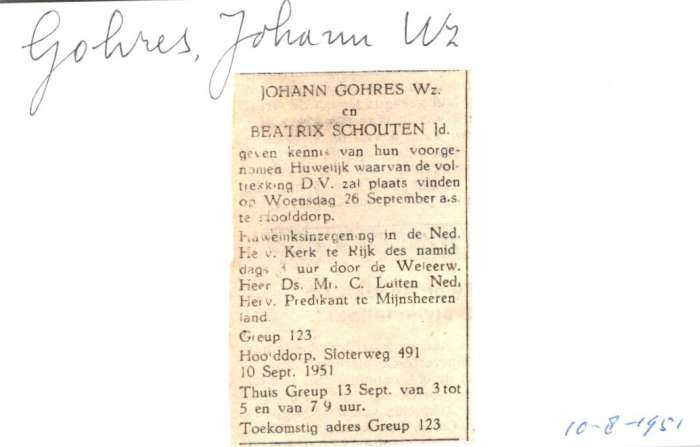 Gohres, Johann Wz
JOHANN GOHRES Wz.
en
BEATRIX SCHOUTEN Jd.
geven kennis van hun voorge-
nomen Huwelijk waarvan de vol-
trekking D.V. zal plaats vinden
op Woensdag 26 September a.s.
te Hoofddorp.
Huwelijksinzegening in de Ned.
Herv. Kerk te Rijk des namid
dags uur door de Weleerw.
Heer Ds. Mr. C. Luiten Ned.
Herv. Predikant te Mijnsheeren
land.
Greup 123
Hoofddorp, Sloterweg 491
10 Sept. 1951
Thuis Greup 13 Sept. van 3 tot
5 en van 7 9 uur.
Toekomstig adres Greup 123
10-8-1951